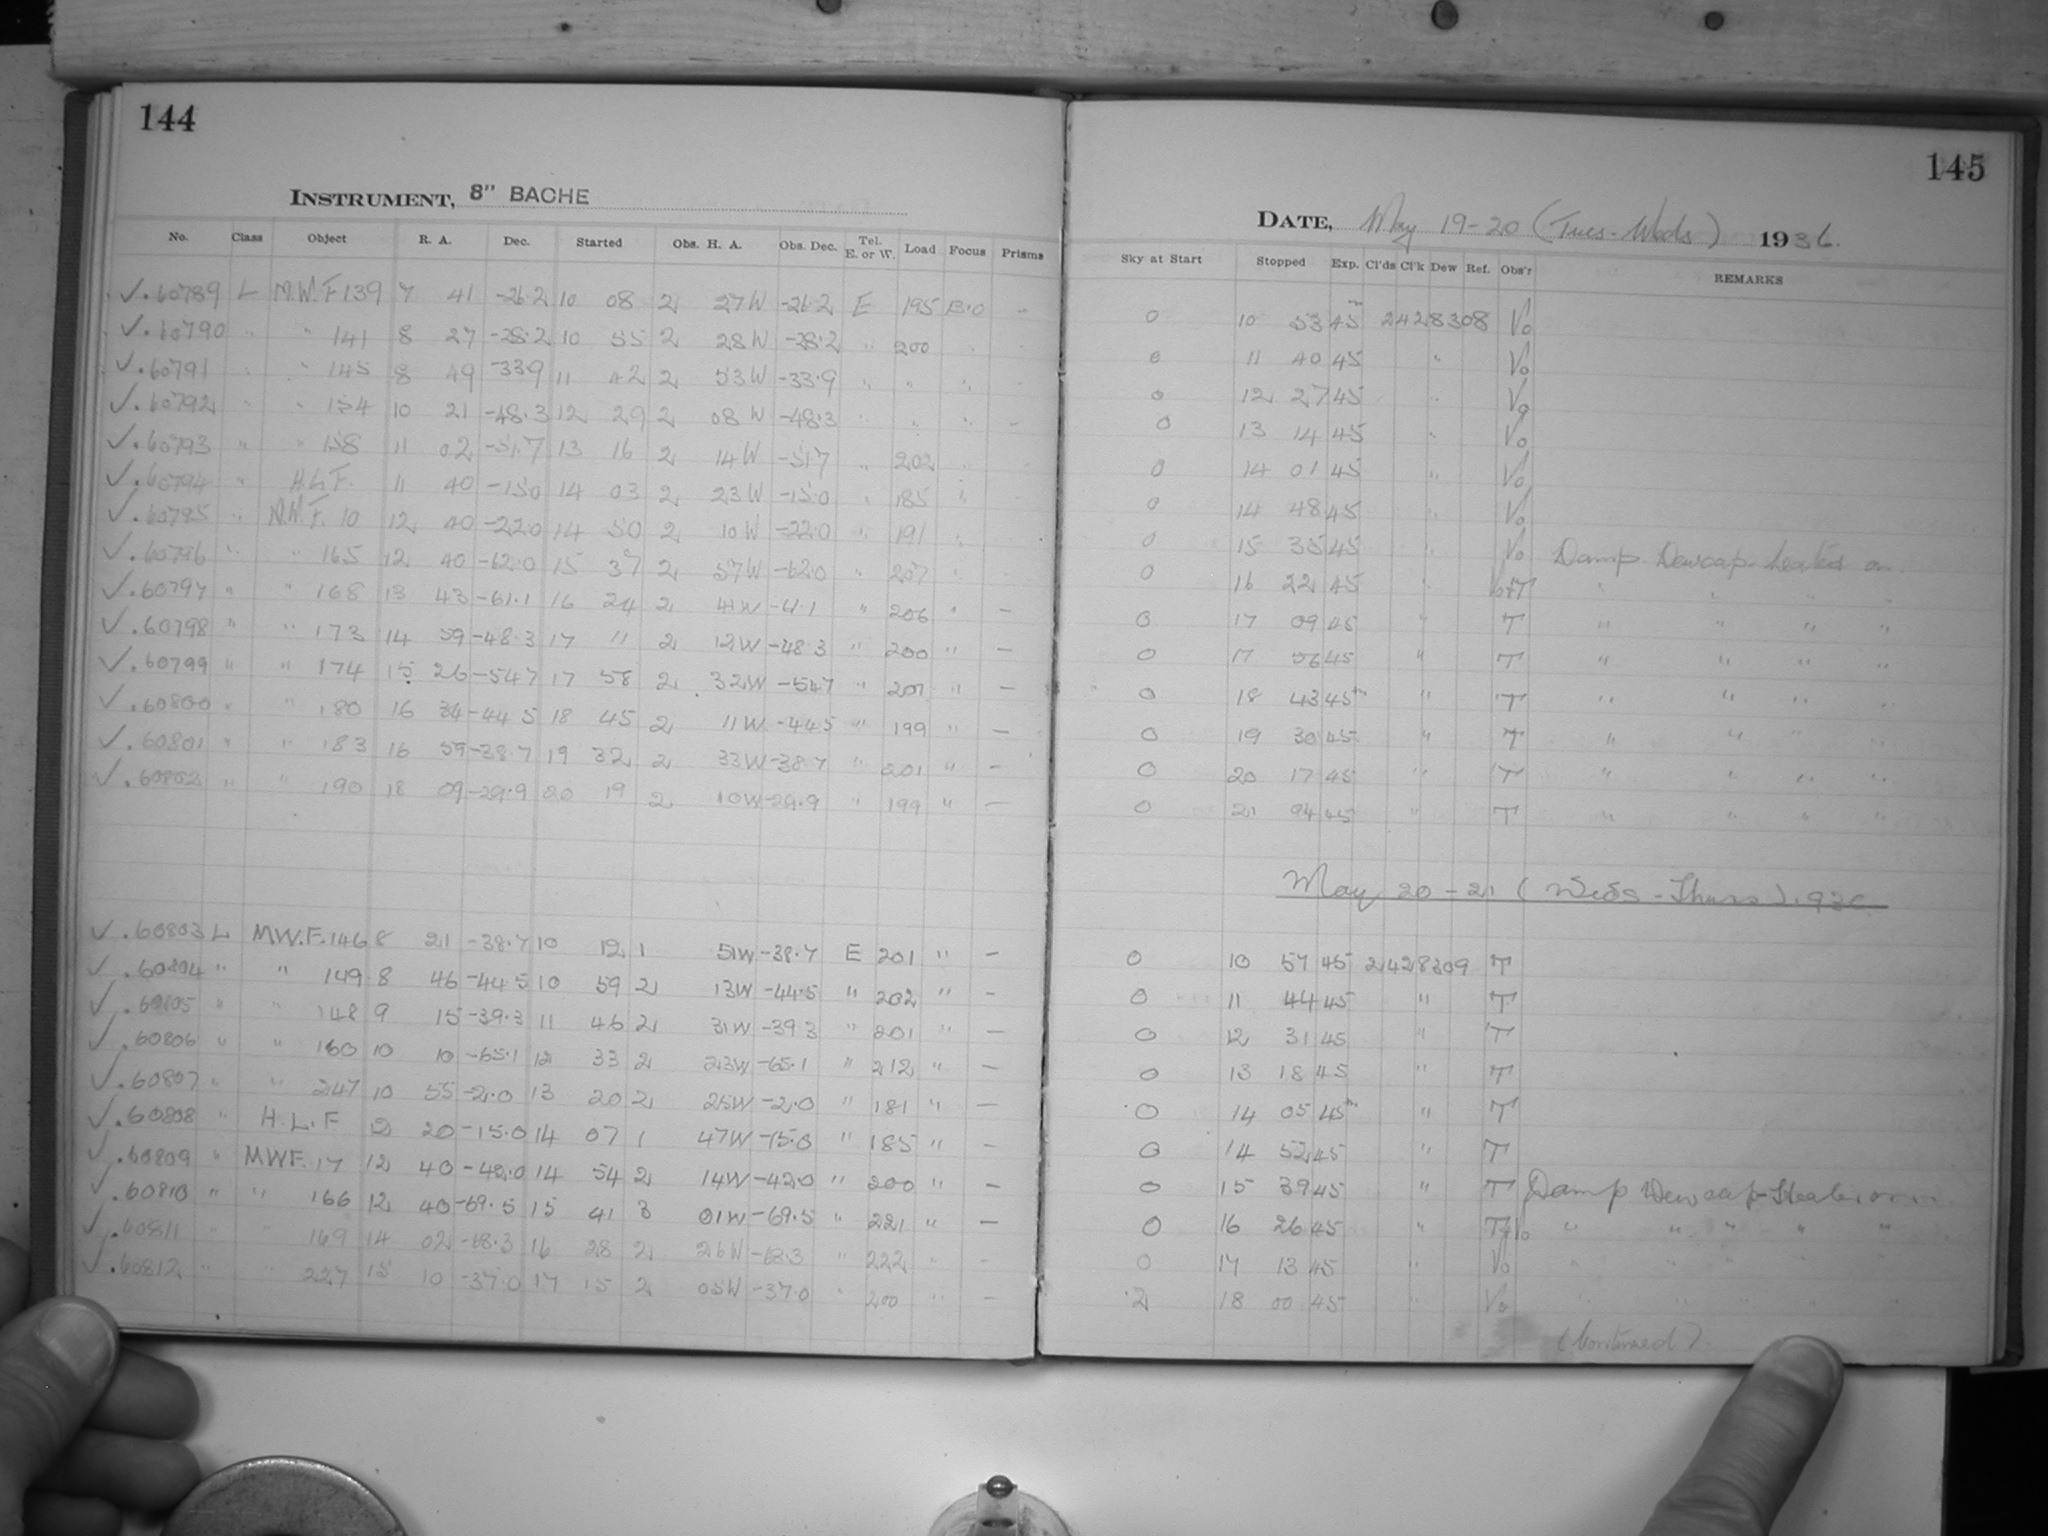 144
INSTRUMENT, 8" BACHE
No. Class Object R. A. Dec. Started Obs. H. A. Obs. Dec. Tel. E. or W. Load Focus Prisms
✓.60789 L M.W.F 139 7 41 -26.2 10 08 2 27W -26.2 E 195 13.0 -
✓.60790 " " 141 8 27 -28.2 10 55 2 28W -28.2 " 200 "
✓.60791 " " 145 8 49 -33.9 11 42 2 53W -33.9 " " "
✓.60792 " " 154 10 21 -48.3 12 29 2 08W -48.3 " " " -
✓.60793 " " 158 11 02 -51.7 13 16 2 14W -51.7 " 202 "
✓.60794 " H.L.F. 11 40 -15.0 14 03 2 23W -15.0 " 185 "
✓.60795 " M.W.F. 10 12 40 -22.0 14 50 2 10W -22.0 " 191 "
✓.60796 " " 165 12 40 -62.0 15 37 2 57W -62.0 " 207 "
✓.60797 " " 168 13 43 -61.1 16 24 2 41W -61.1 " 206 " -
✓.60798 " " 173 14 59 -48.3 17 11 2 12W -48.3 " 200 " -
✓.60799 " " 174 15 26 -54.7 17 58 2 32W -54.7 " 207 " -
✓.60800 " " 180 16 34 -44.5 18 45 2 11W -44.5 " 199 " -
✓.60801 " " 183 16 59 -38.7 19 32 2 33W -38.7 " 201 " -
✓.60802 " " 190 18 09 -29.9 20 19 2 10W -29.9 " 199 " -
✓.60803 L MW.F. 146 8 21 -38.7 10 12 1 51W -38.7 E 201 " -
✓.60804 " " 149 8 46 -44.5 10 59 2 13W -44.5 " 202 " -
✓.60805 " " 148 9 15 -39.3 11 46 2 31W -39.3 " 201 " -
✓.60806 " " 160 10 10 -65.1 12 33 2 23W -65.1 " 212 " -
✓.60807 " " 247 10 55 -2.0 13 20 2 25W -2.0 " 181 " -
✓.60808 " H.L.F 12 20 -15.0 14 07 1 47W -15.0 " 185 " -
✓.60809 " MWF. 17 12 40 -42.0 14 54 2 14W -42.0 " 200 " -
✓.60810 " " 166 12 40 -69.5 15 41 3 01W -69.5 " 221 " -
✓.60811 " " 169 14 02 -68.3 16 28 2 26W -68.3 " 222 " -
✓.60812 " " 227 15 10 -37.0 17 15 2 05W -37.0 " 200 " -
145
DATE, May 19-20 (Tues-Weds) 1936.
Sky at Start Stopped Exp. Cl'ds Cl'k Dew Ref. Obs'r REMARKS
0 10 53 45m 2428308 Vo
0 11 40 45 " Vo
0 12 27 45 " Vo
0 13 14 45 " Vo
0 14 01 45 " Vo
0 14 48 45 " Vo
0 15 35 45 " Vo Damp. Dewcap-heater on.
0 16 22 45 " Vo+T " " " "
0 17 09 45 " T " " " "
0 17 56 45 " T " " " "
0 18 43 45m " T " " " "
0 19 30 45 " T " " " "
0 20 17 45 " T " " " "
0 21 04 45 " T " " " "
May 20-21 (Weds-Thurs) 1936
0 10 57 45 2428309 T
0 11 44 45 " T
0 12 31 45 " T
0 13 18 45 " T
0 14 05 45m " T
0 14 52 45 " T
0 15 39 45 " T Damp Dewcap-Heater on
0 16 26 45 " T+Vo " " " " "
0 17 13 45 " Vo " " " " "
2 18 00 45 " Vo " " " " "
(Continued).